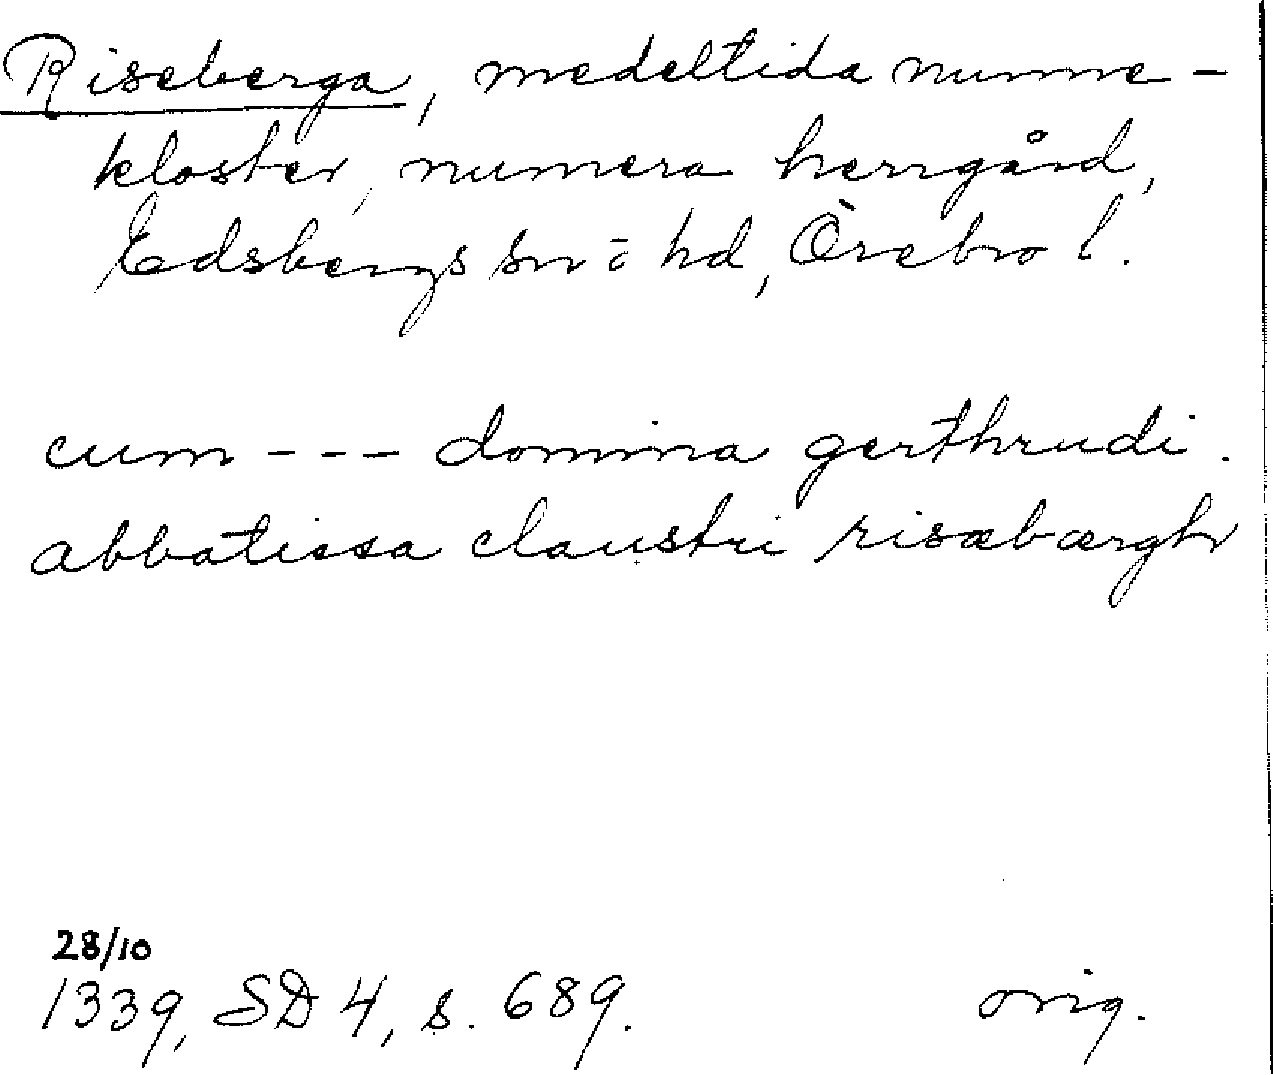 Riseberga, medeltida nunne-
kloster, numera herrgård,
Edsbergs sn o hd, Örebro l.
cum --- domina gerthrudi.
abbatissa claustri risæbærgh
28/10
1339, SD 4, s. 689. orig.